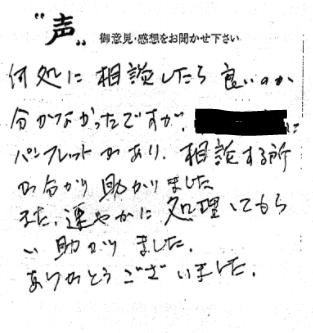 "声" 御意見・感想をお聞かせ下さい
何処に相談したら良いのか
分からなかったですが、 に
パンフレットがあり、相談する所
が分かり助かりました
また、速やかに処理してもら
い助かりました。
ありがとうございました。